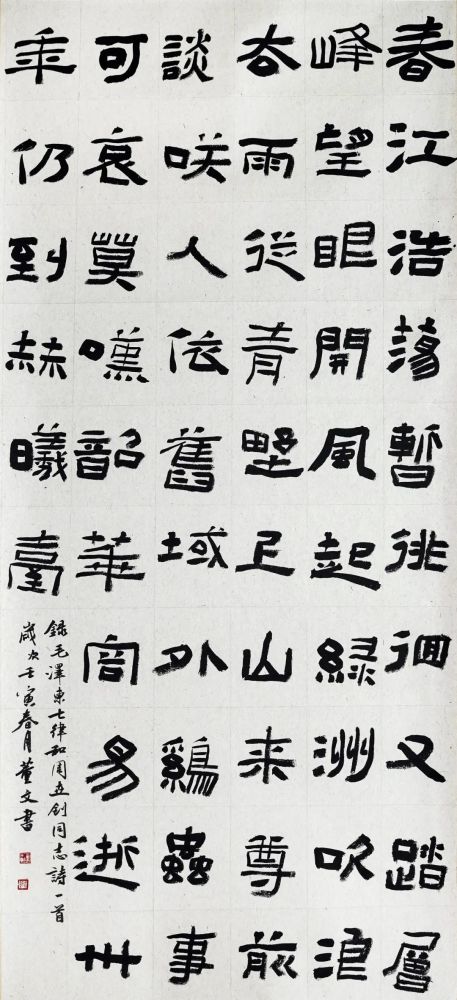 春江浩蕩暫徘徊又踏層
峰望眼開風起緑洲吹浪
去雨從青野上山来尊前
談咲人依舊域外鷄蟲事
可哀莫嘆韶華容易逝卅
年仍到赫曦臺
録毛澤東七律和周世釗同志詩一首
歲次壬寅春月董文書